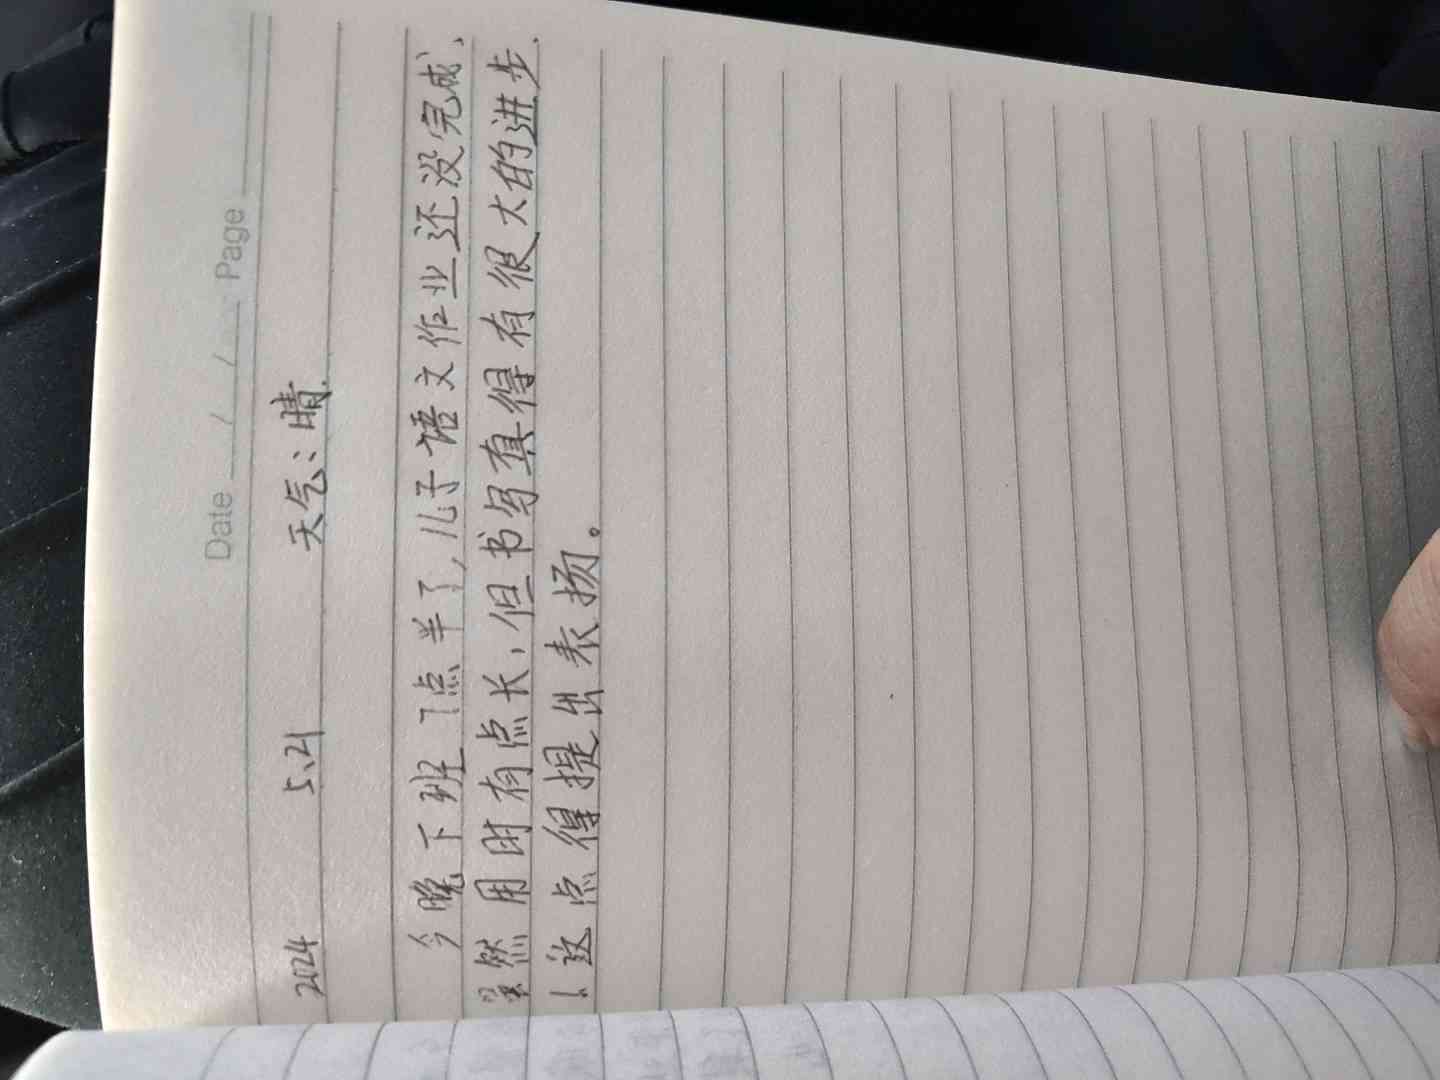 Date / / Page
2024 5.21 天气:晴.
今晚下班7点半了,儿子语文作业还没完成,
虽然用时有点长,但书写真得有很大的进步.
这点得提出表扬。